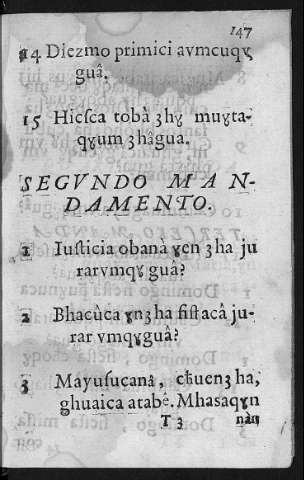 147
14 Diezmo primici avmcuqɣ
guâ.
15 Hicſca tobà ʒhɣ muɣta-
qɣum ʒhâgua.
SEGVNDO MAN-
DAMENTO.
1 Iuſticia obana ɣcn ʒha ju
rarvmqɣ guâ?
2 Bhacùca ɣnʒha ſiſtacâ ju-
rar vmqɣguâ?
3 Mayuſucanâ, cħuenʒha,
ghuaica atabè. Mhasaqɣn
T 3 nàn